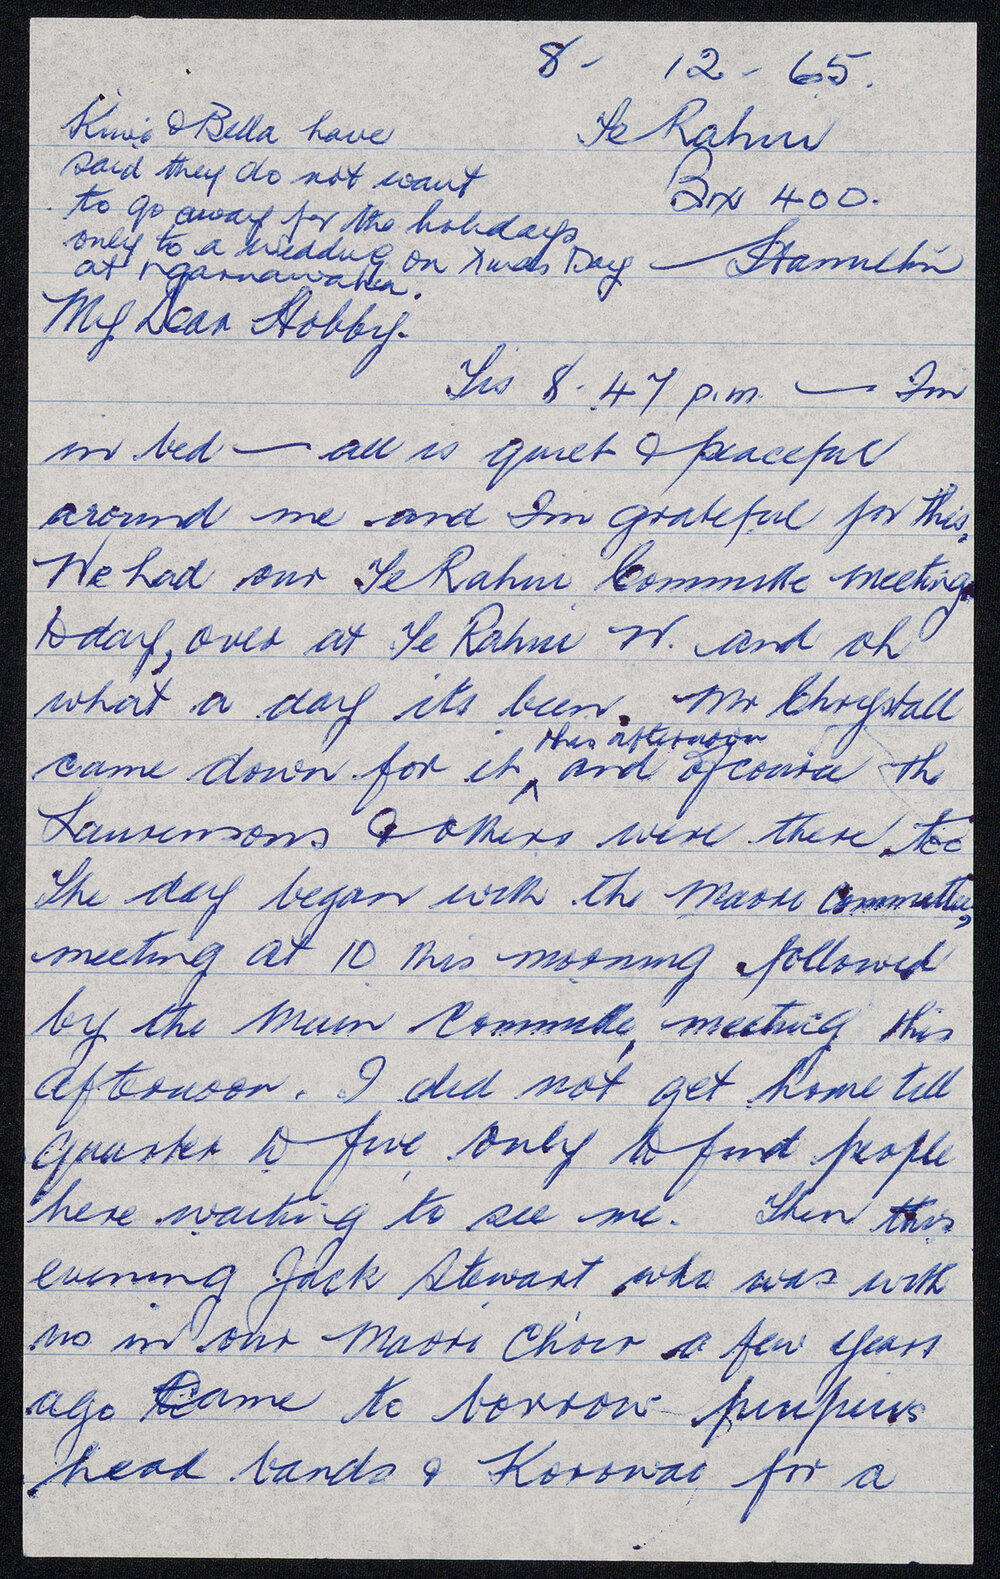 8 - 12 - 65.
Te Rahui
Box 400.
Hamilton
Kiwi & Bella have
said they do not want
to go away for the holidays
only to a wedding on Xmas Day
at Ngaruawahia.
My Dear Hobby.
Tis 8.47 p.m. — Im
in bed — all is quiet & peaceful
around me and Im grateful for this.
We had our Te Rahui Committe meeting
today, over at Te Rahui W. and oh
what a day its been. Mr Chrystall
came down for it, this afternoon and of course th
Laurensons & others were there too
The day began with the Maori Committee,
meeting at 10 this morning followed
by the Main Committe, meeting this
afternoon. I did not get home till
quarter to five only to find people
here waiting to see me. Then this
evening Jack Stewart who was with
us in our Maori Choir a few years
ago came to borrow piupius
head bands & Korowai for a